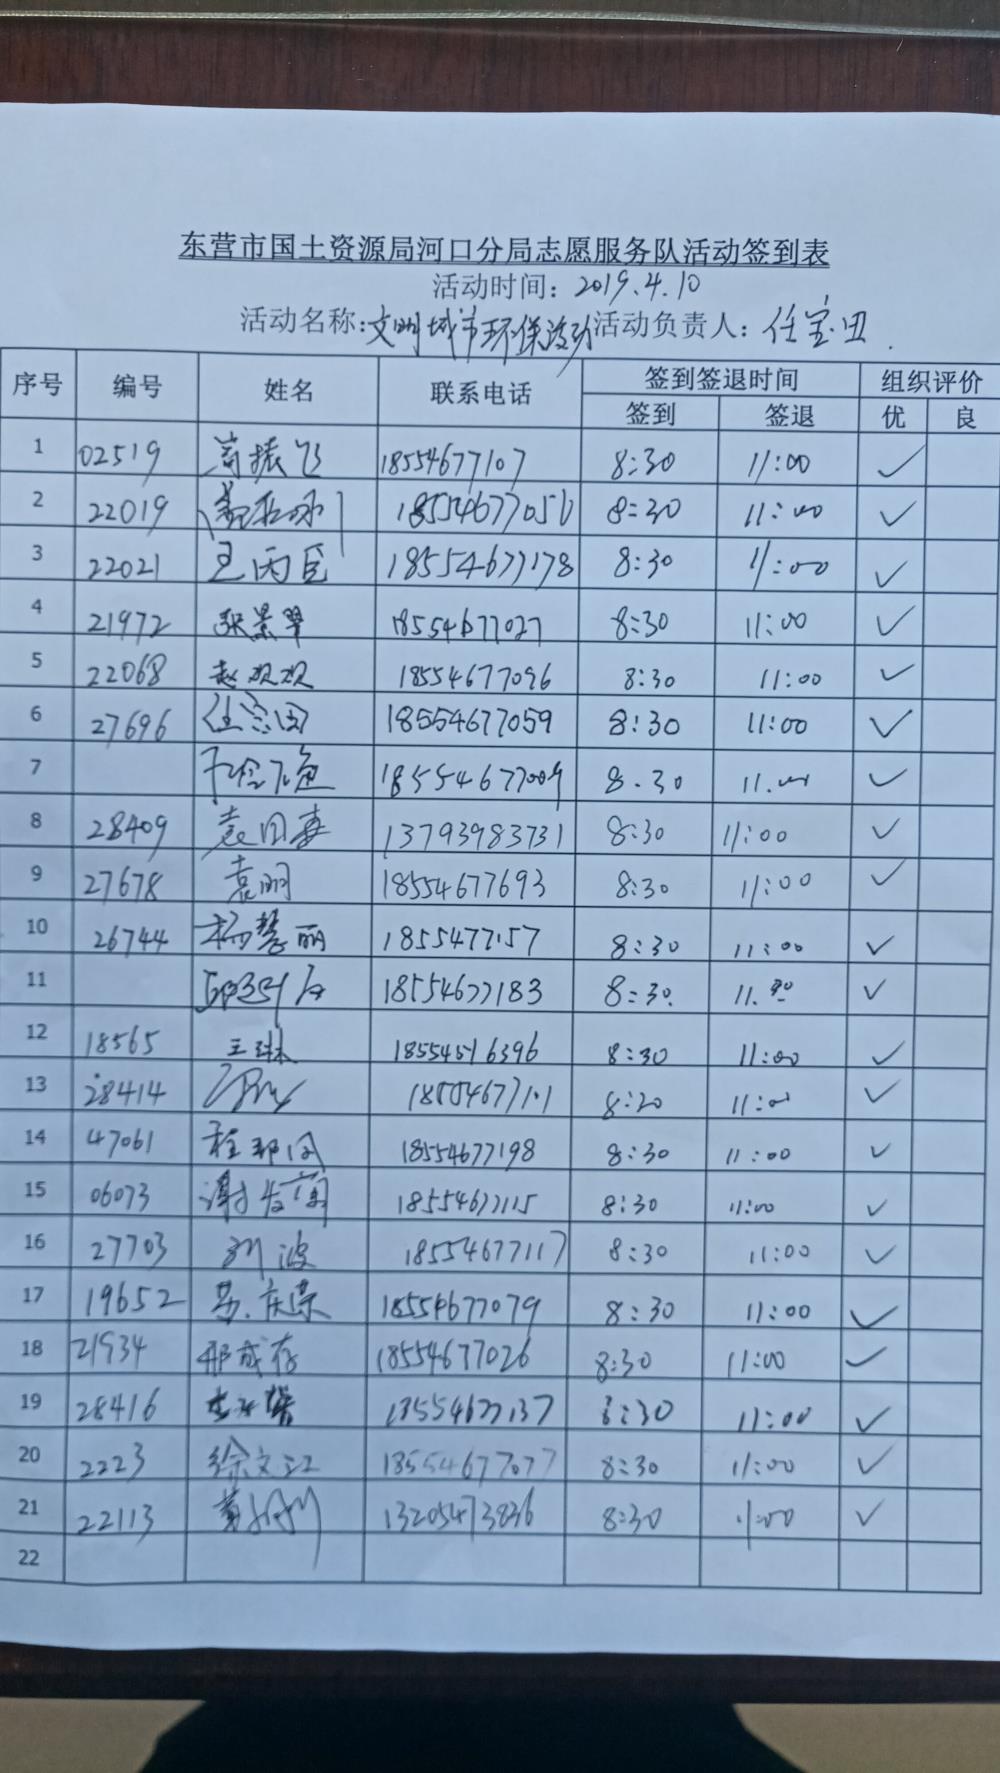 东营市国土资源局河口分局志愿服务队活动签到表
活动时间：2019.4.10
活动名称：文明城市环保活动 活动负责人：任宝田
序号 编号 姓名 联系电话 签到签退时间 组织评价
签到 签退 优 良
1 02519 振飞 18554677107 8:30 11:00 ✓
2 22019 1855467705 8:30 11:00 ✓
3 22021 王丙臣 18554677178 8:30 11:00 ✓
4 21972 张景翠 18554677027 8:30 11:00 ✓
5 22068 赵双双 18554677096 8:30 11:00 ✓
6 27696 任宝田 18554677059 8:30 11:00 ✓
7 18554677009 8.30 11.00 ✓
8 28409 袁田 13793983731 8:30 11:00 ✓
9 27678 袁明 18554677693 8:30 11:00 ✓
10 26744 杨慧丽 1855477157 8:30 11:00 ✓
11 18554677183 8:30. ✓
12 18565 王琳 18554516396 8:30 11:00 ✓
13 28414 18554677101 8:20 11:00 ✓
14 47061 程 18554677198 8:30 11:00 ✓
15 06073 谢 18554677115 8:30 11:00 ✓
16 27703 刘波 18554677117 8:30 11:00 ✓
17 19652 庆荣 18554677079 8:30 11:00 ✓
18 21934 邢成存 18554677026 8:30 11:00 ✓
19 28416 18554677137 8:30 11:00 ✓
20 2223 徐文江 18554677077 8:30 11:00 ✓
21 22113 黄 13205473836 8:30 11:00 ✓
22